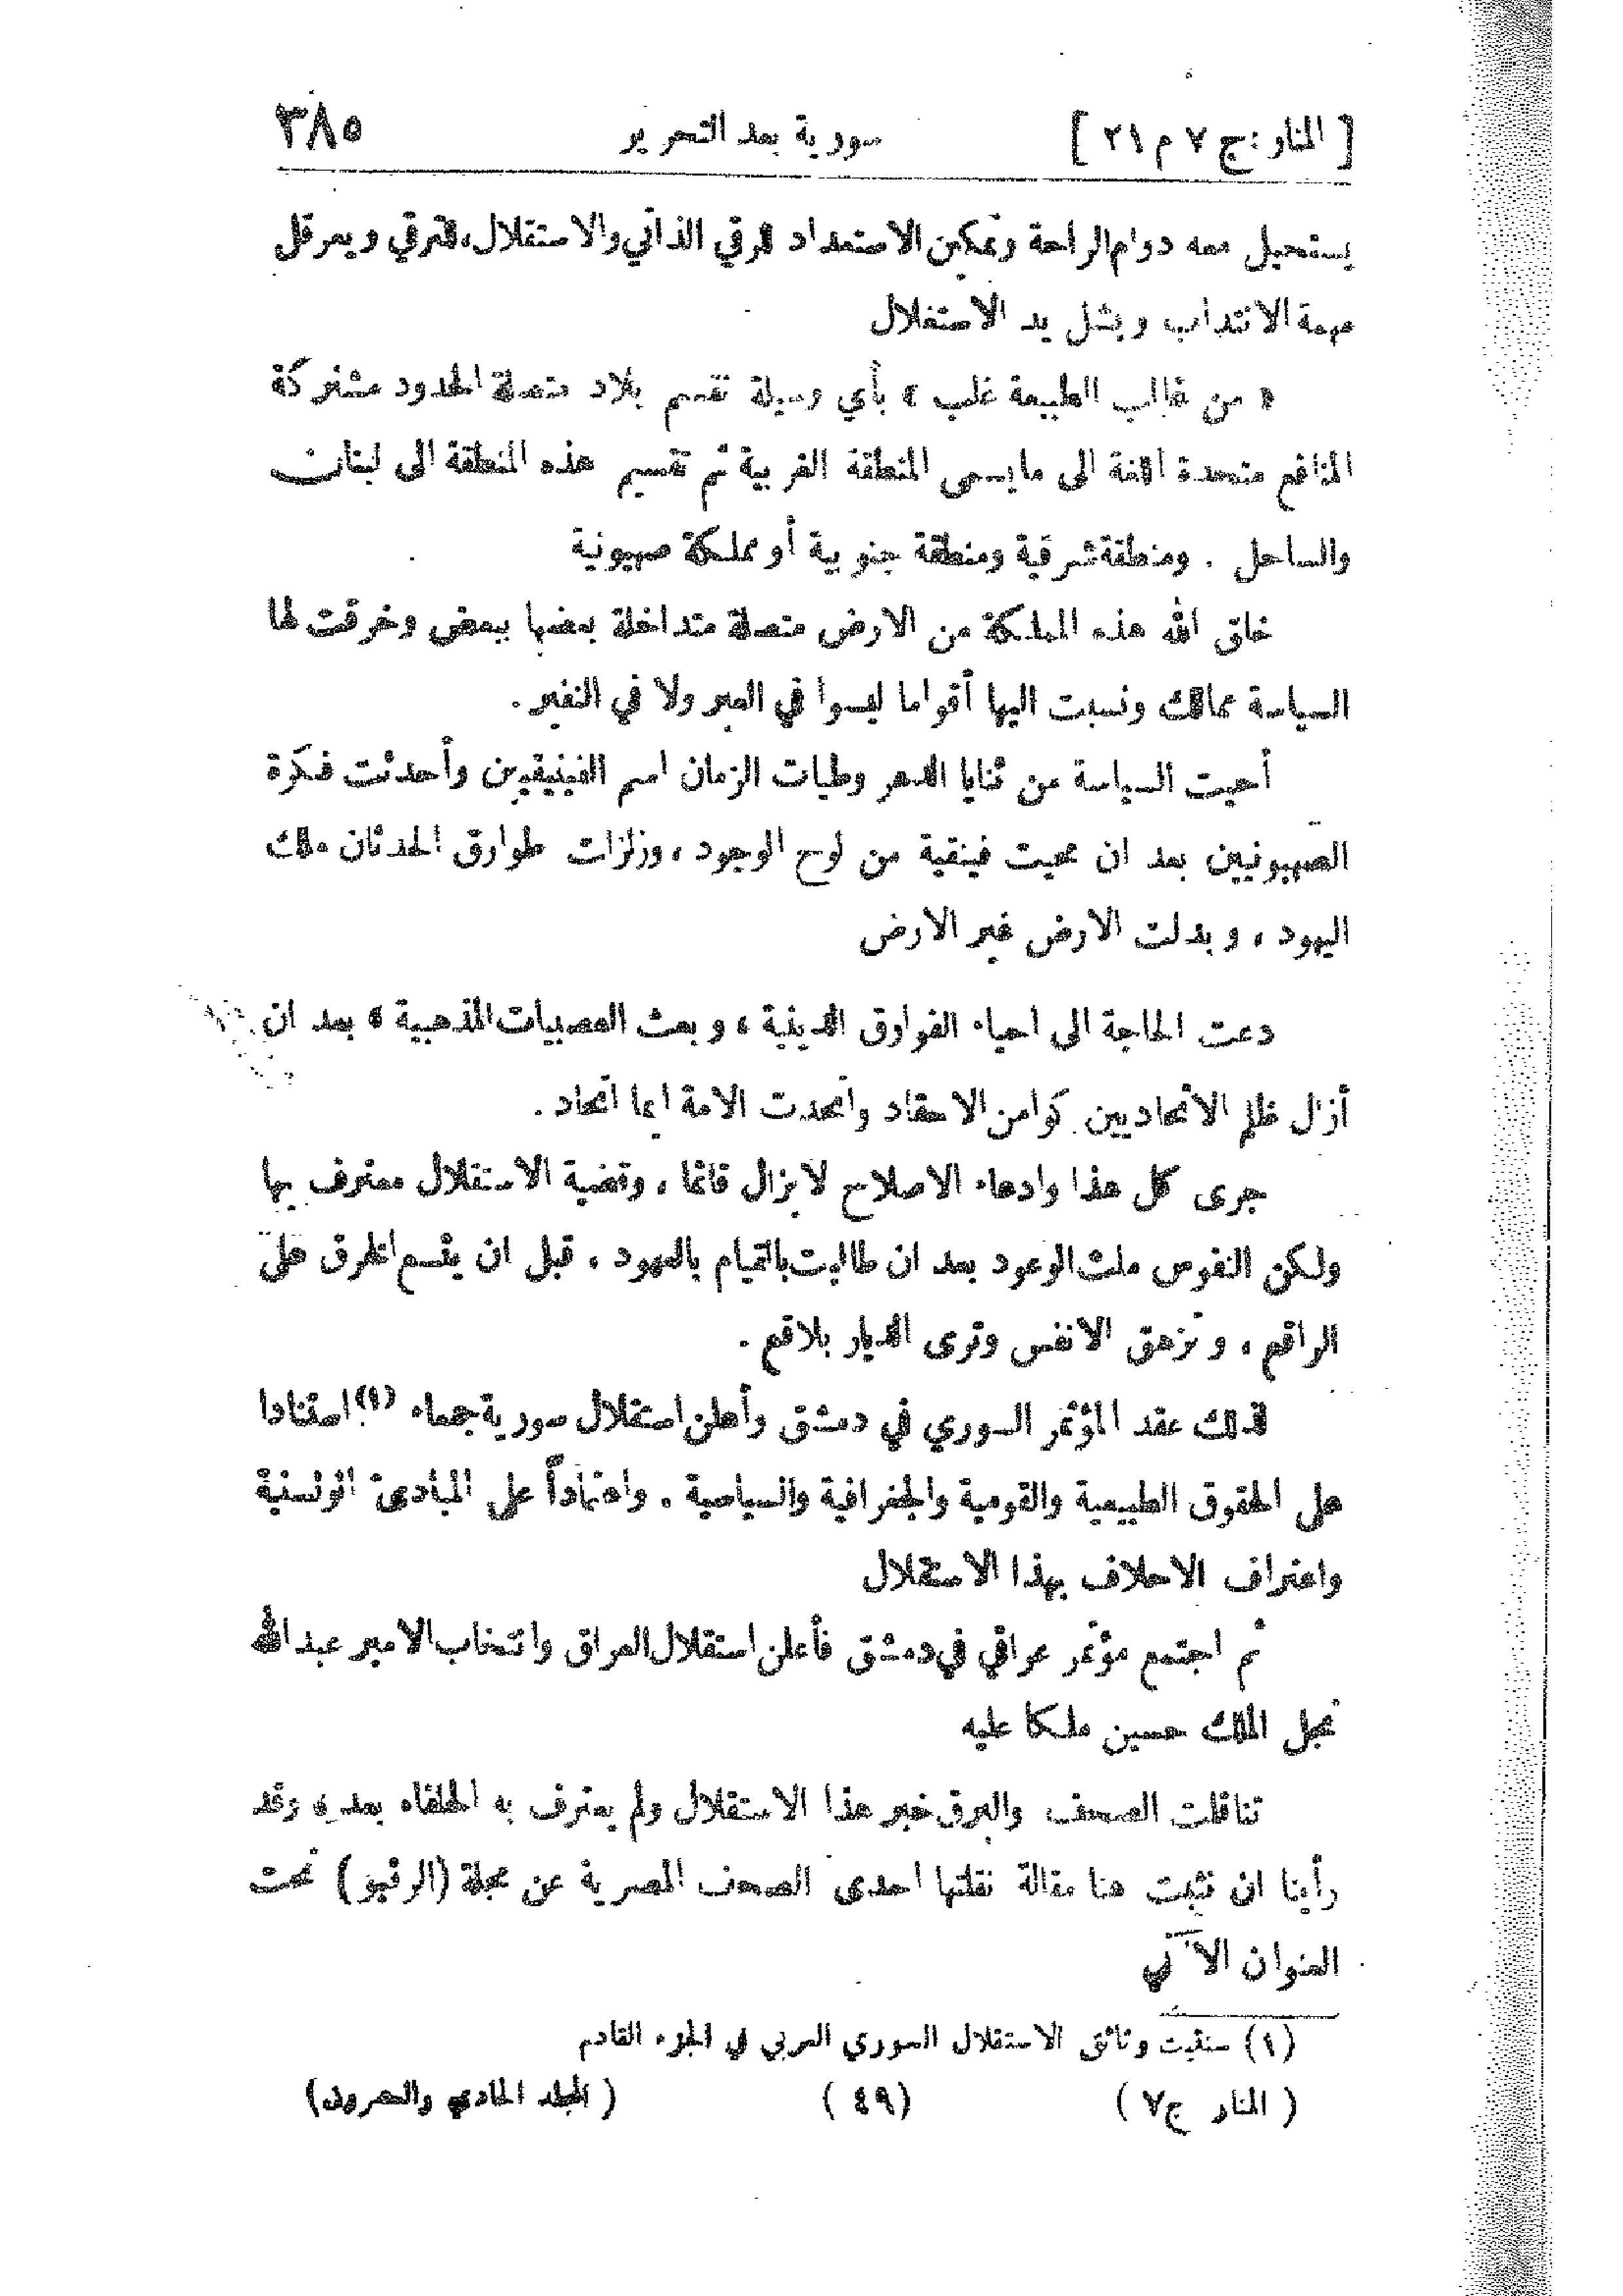 [ المنار : ج ٧ م ٢١ ] سورية بعد التحرير ٣٨٥
يستحيل معه دوام الراحة وتمكين الاستعداد للرقي الذاتي والاستقلال، للترقي ويعرقل
مهمة الانتداب ويشل يد الاستغلال
« من غالب الطبيعة غلب » بأي وسيلة تقسم بلاد متصلة الحدود مشتركة
المنافع متحدة اللغة الى مايسمى المنطقة الغربية ثم تقسيم هذه المنطقة الى لبنان
والساحل . ومنطقة شرقية ومنطقة جنوبية أو مملكة صهيونية
خلق الله هذه المملكة من الارض متصلة متداخلة بعضها ببعض وخرقت لها
السياسة ممالك ونسبت اليها أقواما ليسوا في العير ولا في النفير .
أحيت السياسة من ثنايا الدهر وطيات الزمان اسم الفينيقيين وأحدثت فكرة
الصهيونيين بعد ان محيت فينقية من لوح الوجود ، وزلزلت طوارق الحدثان ملك
اليهود ، وبدلت الارض غير الارض
دعت الحاجة الى احياء الفوارق الدينية ، وبعث العصبيات المذهبية ، بعد ان
أزال ظلم الاتحاديين كوامن الاحقاد واتحدت الامة ايما اتحاد .
جرى كل هذا وادعاء الاصلاح لا يزال قائما ، وقضية الاستقلال معترف بها
ولكن النفوس ملت الوعود بعد ان طالبت بالقيام بالعهود . قبل ان يتسع الخرق على
الراقع ، وتزهق الانفس وترى الديار بلاقع .
لذلك عقد المؤتمر السوري في دمشق وأعلن استقلال سورية جمعاء (١) استنادا
على الحقوق الطبيعية والقومية والجغرافية والسياسية . واعتماداً على المبادئ الولسنية
واعتراف الاحلاف بهذا الاستقلال
ثم اجتمع مؤتمر عراقي في دمشق فأعلن استقلال العراق وانتخاب الامير عبد الله
نجل الملك حسين ملكا عليه
تناقلت الصحف والبرق خبر هذا الاستقلال ولم يعترف به الحلفاء بعد ، وقد
رأينا ان نثبت هنا مقالة نقلتها احدى الصحف المصرية عن مجلة (الرفيو) تحت
العنوان الآتي
(١) سنثبت وثائق الاستقلال السوري العربي في الجزء القادم
( المنار ج ٧ ) ( ٤٩ ) ( المجلد الحادي والعشرون )